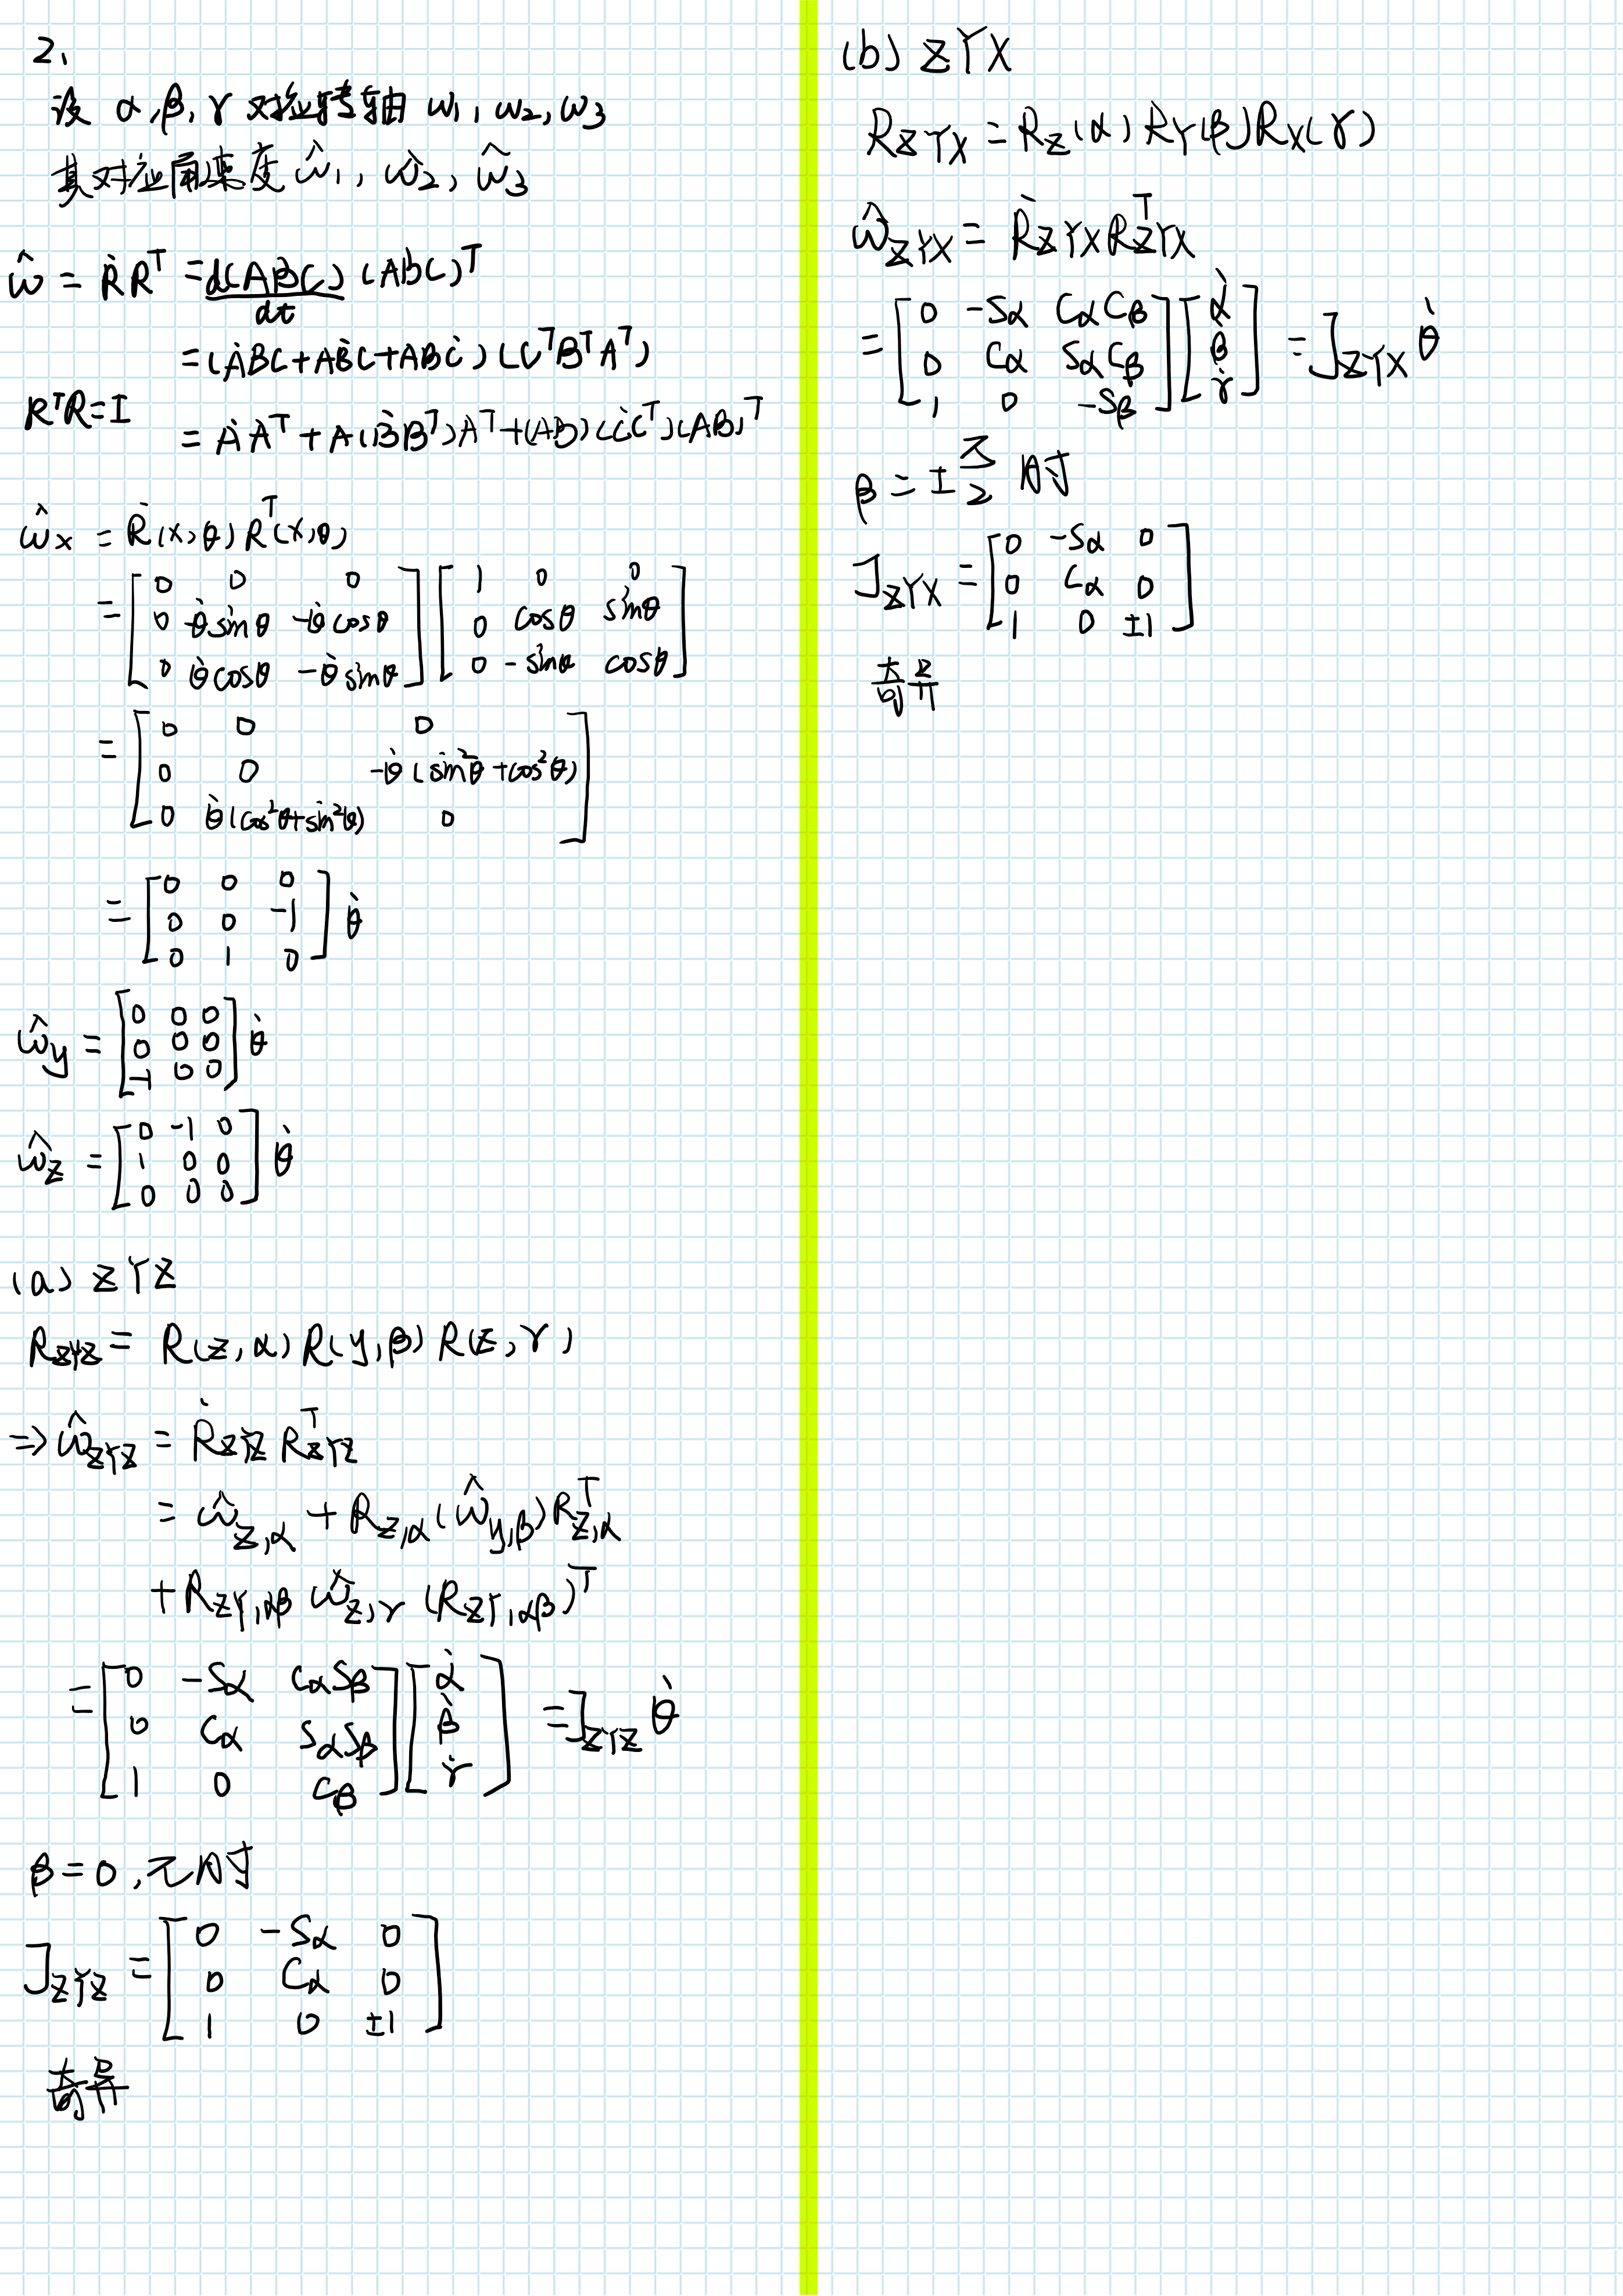 2.
设 α, β, γ 对应转轴 ω₁, ω₂, ω₃
其对应角速度 ω̂₁, ω̂₂, ω̂₃
ω̂ = ṘRᵀ = d(ABC)/dt (ABC)ᵀ
= (ȦBC + AḂC + ABĊ)(CᵀBᵀAᵀ)
RᵀR = I
= ȦAᵀ + A(ḂBᵀ)Aᵀ + (AB)(ĊCᵀ)(AB)ᵀ
ω̂x = Ṙ(x,θ) Rᵀ(x,θ)
= [0 0 0; 0 -θ̇sinθ -θ̇cosθ; 0 θ̇cosθ -θ̇sinθ] [1 0 0; 0 cosθ sinθ; 0 -sinθ cosθ]
= [0 0 0; 0 0 -θ̇(sin²θ+cos²θ); 0 θ̇(cos²θ+sin²θ) 0]
= [0 0 0; 0 0 -1; 0 1 0] θ̇
ω̂y = [0 0 0; 0 0 0; -1 0 0] θ̇
ω̂z = [0 -1 0; 1 0 0; 0 0 0] θ̇
(a) ZYZ
R_ZYZ = R(z,α) R(y,β) R(z,γ)
⇒ ω̂_ZYZ = Ṙ_ZYZ R_ZYZᵀ
= ω̂_z,α + R_z,α (ω̂_y,β) R_z,αᵀ
+ R_ZY,αβ ω̂_z,γ (R_ZY,αβ)ᵀ
= [0 -Sα CαSβ; 0 Cα SαSβ; 1 0 Cβ] [α̇; β̇; γ̇] = J_ZYZ θ̇
β = 0, π 时
J_ZYZ = [0 -Sα 0; 0 Cα 0; 1 0 ±1]
奇异
(b) ZYX
R_ZYX = R_Z(α) R_Y(β) R_X(γ)
ω̂_ZYX = Ṙ_ZYX R_ZYXᵀ
= [0 -Sα CαCβ; 0 Cα SαCβ; 1 0 -Sβ] [α̇; β̇; γ̇] = J_ZYX θ̇
β = ±π/2 时
J_ZYX = [0 -Sα 0; 0 Cα 0; 1 0 ±1]
奇异